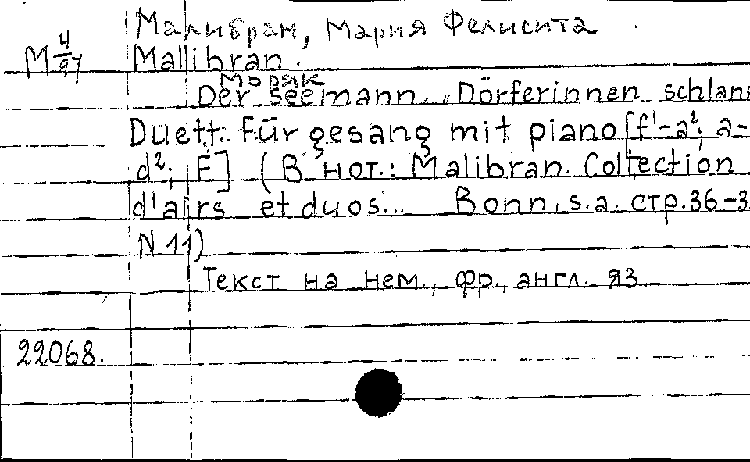 Малибран, Мария Фелисита
М 4/97
Malibran.
Моряк
Der Seemann. „Dörferinnen schlan
Duett. Für gesang mit piano [f¹-a²; a-
d²; F] (В нот.: Malibran. Collection
d'airs et duos... Bonn, s.a. стр.36-3
N 11)
Текст на нем., фр., англ. яз
22068.